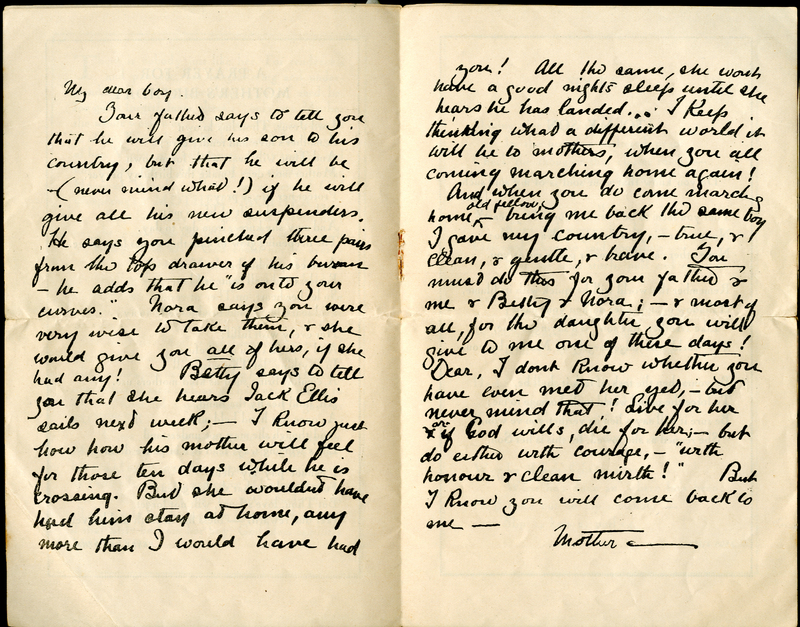 My dear boy.
Your father says to tell you
that he will give his son to his
country, but that he will be
- (never mind what!) if he will
give all his new suspenders.
He says you pinched three pairs
from the top drawer of his bureau
- he adds that he "is onto your
curves." Nora says you were
very wise to take them, & she
would give you all of hers, if she
had any! Betty says to tell
you that she hears Jack Ellis
sails next week; - I know just
how how his mother will feel
for those ten days while he is
crossing. But she wouldn't have
had him stay at home, any
more than I would have had
you! All the same, she wont
have a good nights sleep until she
hears he has landed... I keep
thinking what a different world it
will be to mothers, when you all
coming marching home again!
And when you do come marching
home, - old fellow, bring me back the same boy
I gave my country, - true, &
clean, & gentle, & brave. You
must do this for your father &
me & Betty & Nora; - & most of
all, for the daughter you will
give to me one of these days!
Dear, I dont know whether you
have even met her yet, - but
never mind that! Live for her
or if God wills, die for her; - but
do either with courage, - "with
honour & clean mirth!" But
I know you will come back to
me -
Mother